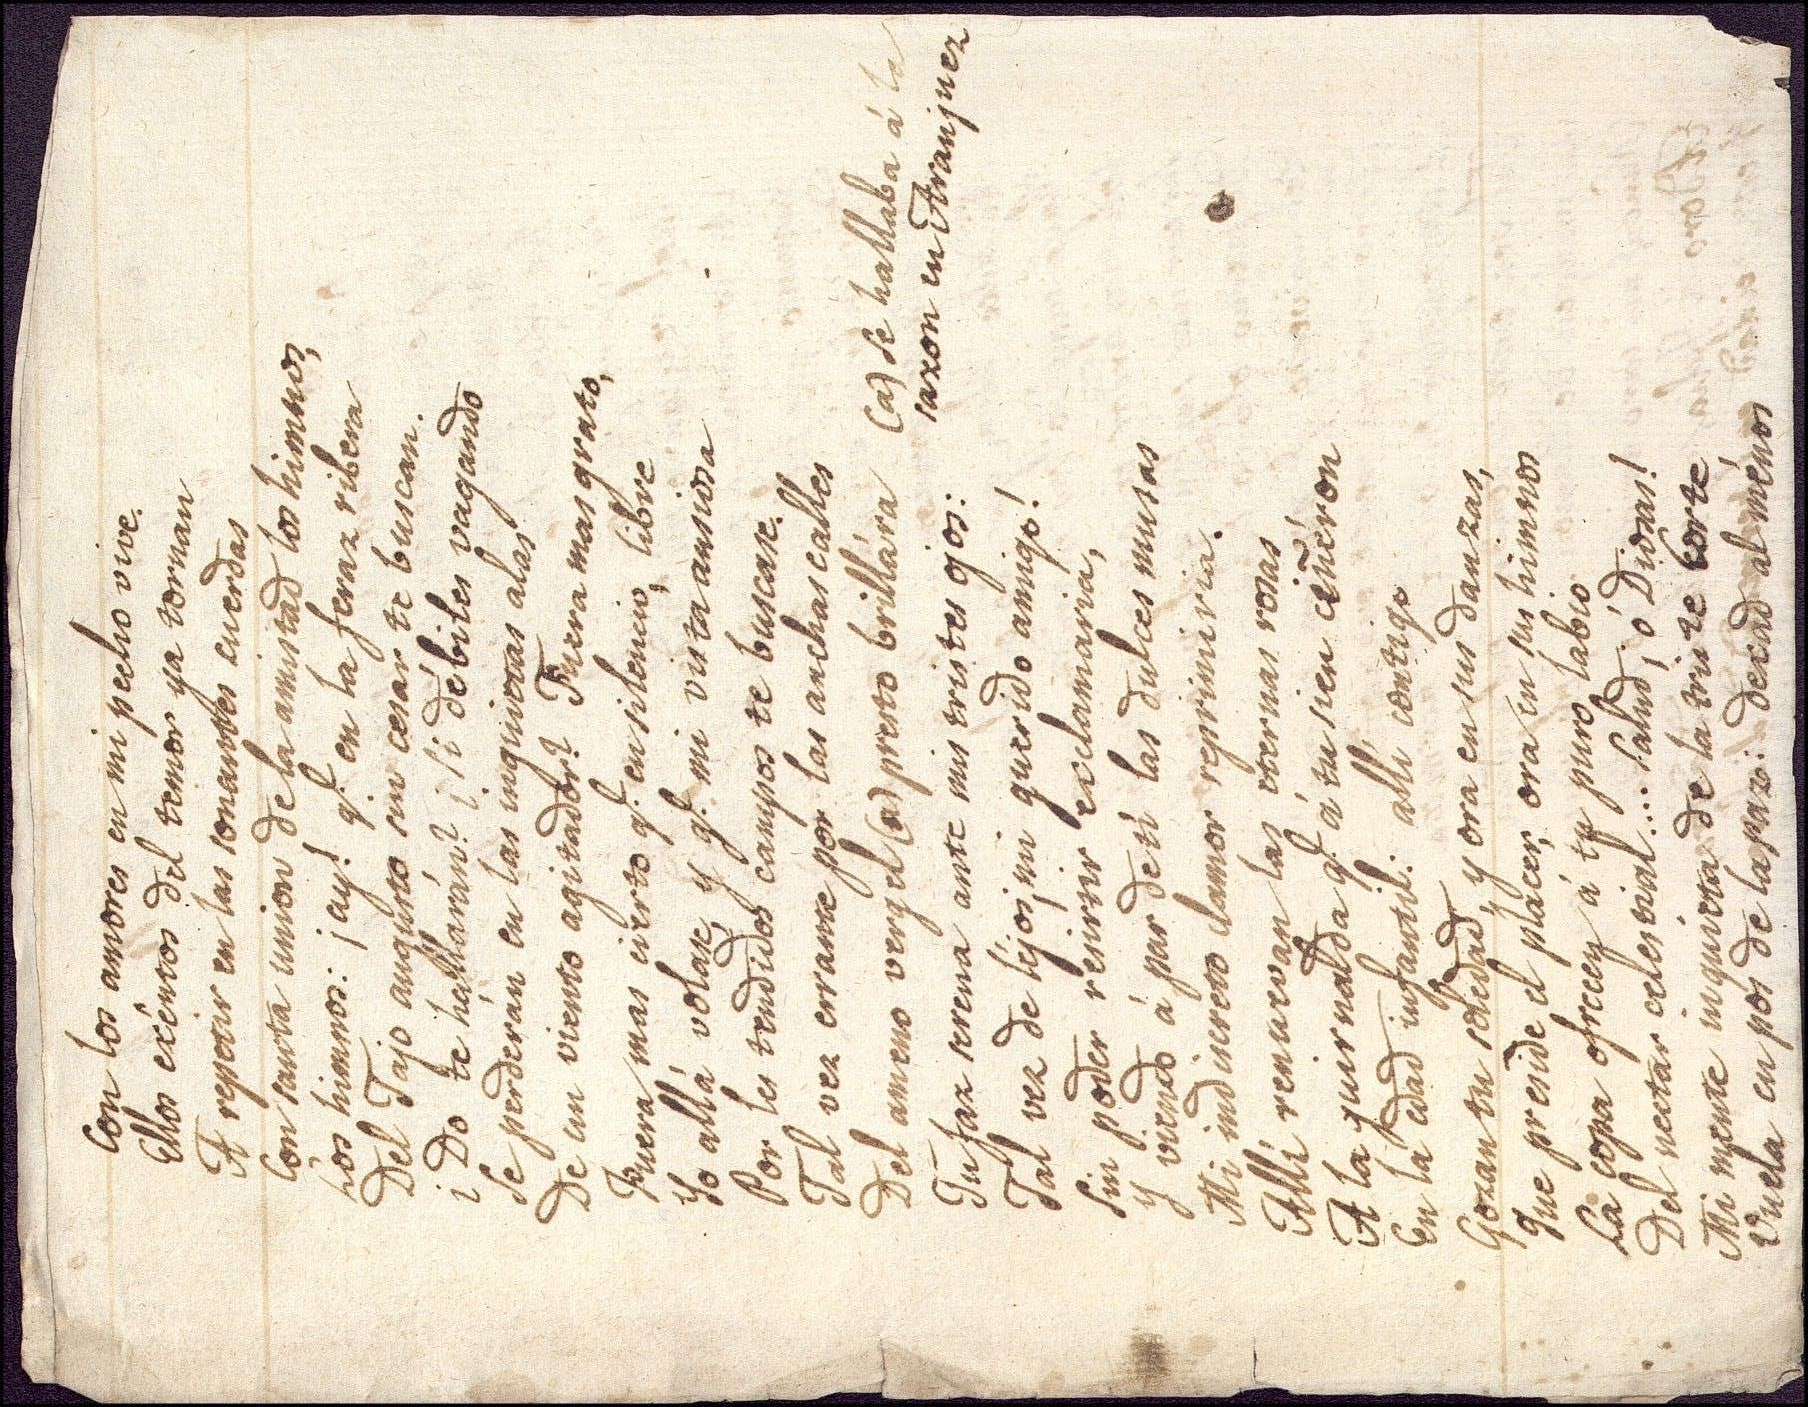 Con los amores en mi pecho vive.
Ellos exéntos del temor ya tornan
A repetir en las sonantes cuerdas
Con santa union de la amistad los himnos,
Los himnos: ¡ay! q.e en la feraz ribera
Del Tajo augusto sin cesár te buscan.
¿Do te hallarán? ¿si débiles vagando
Se perderán en las inquietas alas
De un viento agitador? Fuera mas grato,
Fuera mas cierto q.e en silencio, libre
Yo allá volase, y q.e mi vista ansiosa
Por los tendidos campos te buscase.
Tal vez errante por las anchas calles
Del ameno vergel (a) presto brillára
Tu faz serena ante mis tristes ojos:
Tal vez de léjos ¡mi querido amigo!
Sin poder resistir exclamaria,
Y viendo á par de tí las dulces musas
Mi indiscreto clamor reprimiria.
Allí renuevan las eternas rosas
A la guirnalda q.e á tu sien ciñéron
En la edad infantil: allí contigo
Gozan tu soledad, y ora en sus danzas,
Que preside el placer, ora en sus himnos
La copa ofrecen á tu puro labio
Del nectar celestial... Salud, ó Diosas!
Mi mente inquieta de la triste Corte
Vuela en pos de la paz: dexad al ménos
(a) Se hallaba á la
sazon en Aranjuez